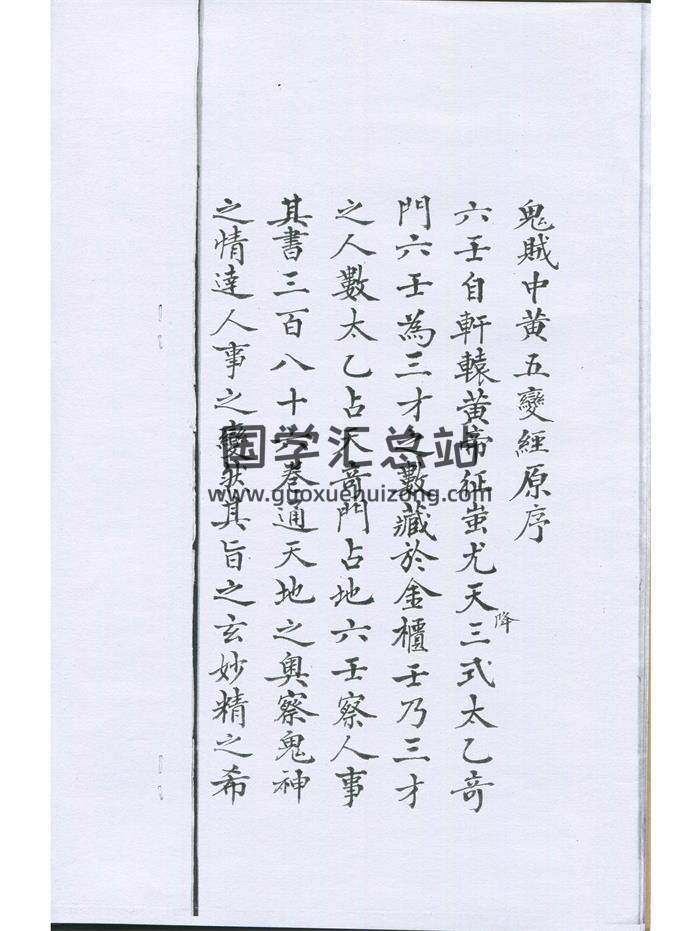 鬼賊中黃五變經原序
六壬自軒轅黃帝征蚩尤天降三式太乙奇
門六壬為三才之數藏於金櫃壬乃三才
之人數太乙占天奇門占地六壬察人事
其書三百八十六卷通天地之奧察鬼神
之情達人事之變狀其旨之玄妙精之希
国学汇总站
www.guoxuehuizong.com